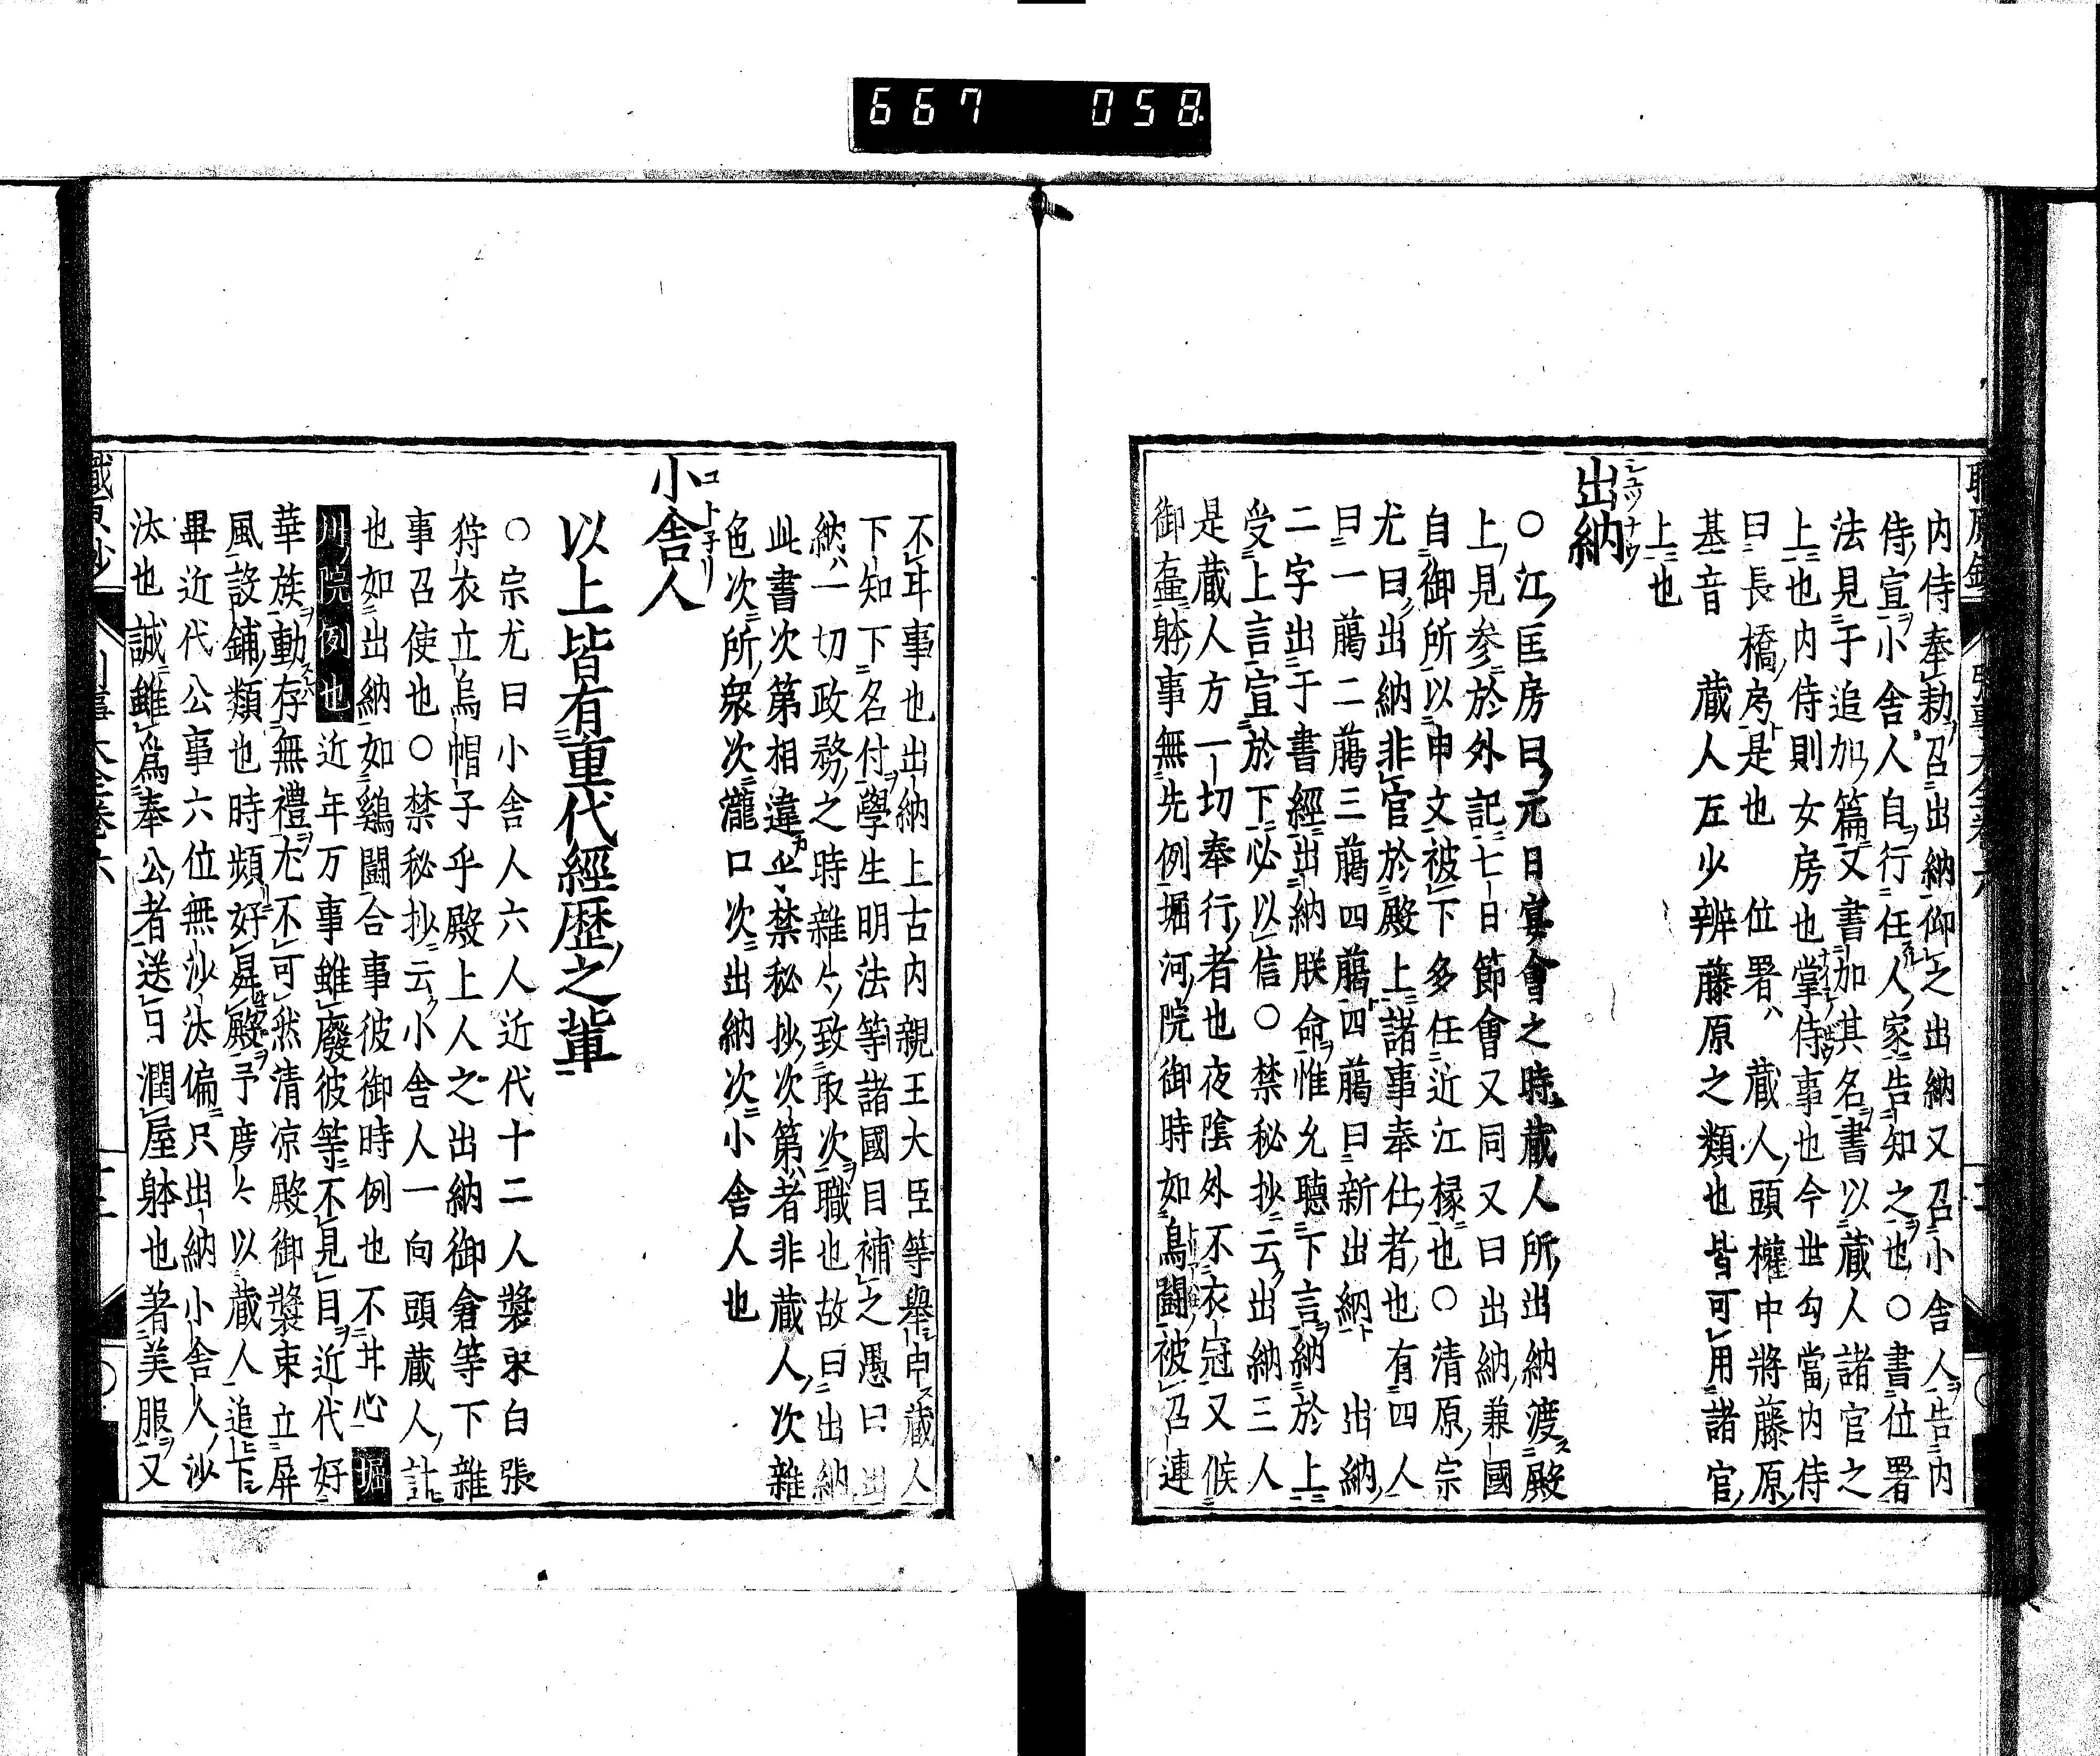 667 058
内侍奉勅召出納仰之出納又召小舎人告内
侍宣小舎人自行任人家告知之也○書位署
法見于追加篇又書加其名書以蔵人諸官之
上也内侍則女房也掌侍事也今世勾當内侍
曰長橋房是也 位署 蔵人頭權中將藤原
基音 蔵人左少辨藤原之類也皆可用諸官
上也
出納
○江匡房曰元日宴會之時蔵人所出納渡殿
上見参於外記七日節會又同又曰出納兼國
自御所以申文被下多任近江掾也○清原宗
尤曰出納非官於殿上諸事奉仕者也有四人
曰一﨟二﨟三﨟四﨟四﨟曰新出納 出納
二字出于書經出納朕命惟允聴下言納於上
受上言宣於下必以信○禁秘抄云出納三人
是蔵人方一切奉行者也夜陰外不衣冠又候
御壷躰事無先例堀河院御時如鳥闘被召連
不耳事也出納上古内親王大臣等舉申蔵人
下知下名付學生明法等諸國目補之愚曰出
納一切政務之時雜々致取次職也故曰出納
此書次第相違歟禁秘抄次第者非蔵人次雜
色次所衆次瀧口次出納次小舎人也
小舎人
以上皆有重代經歴之輩
○宗尤曰小舎人六人近代十二人裝束白張
狩衣立烏帽子乎殿上人之出納御倉等下雜
事召使也○禁秘抄云小舎人一向頭蔵人計
也如出納如鷄闘合事彼御時例也不甘心堀
川院例也近年万事雖廢彼等不見目近代好
華族動存無禮尤不可然清凉殿御裝束立屏
風設鋪類也時頻好昇殿予度々以蔵人追下
畢近代公事六位無沙汰偏只出納小舎人沙
汰也誠雖爲奉公者送日潤屋躰也著美服又